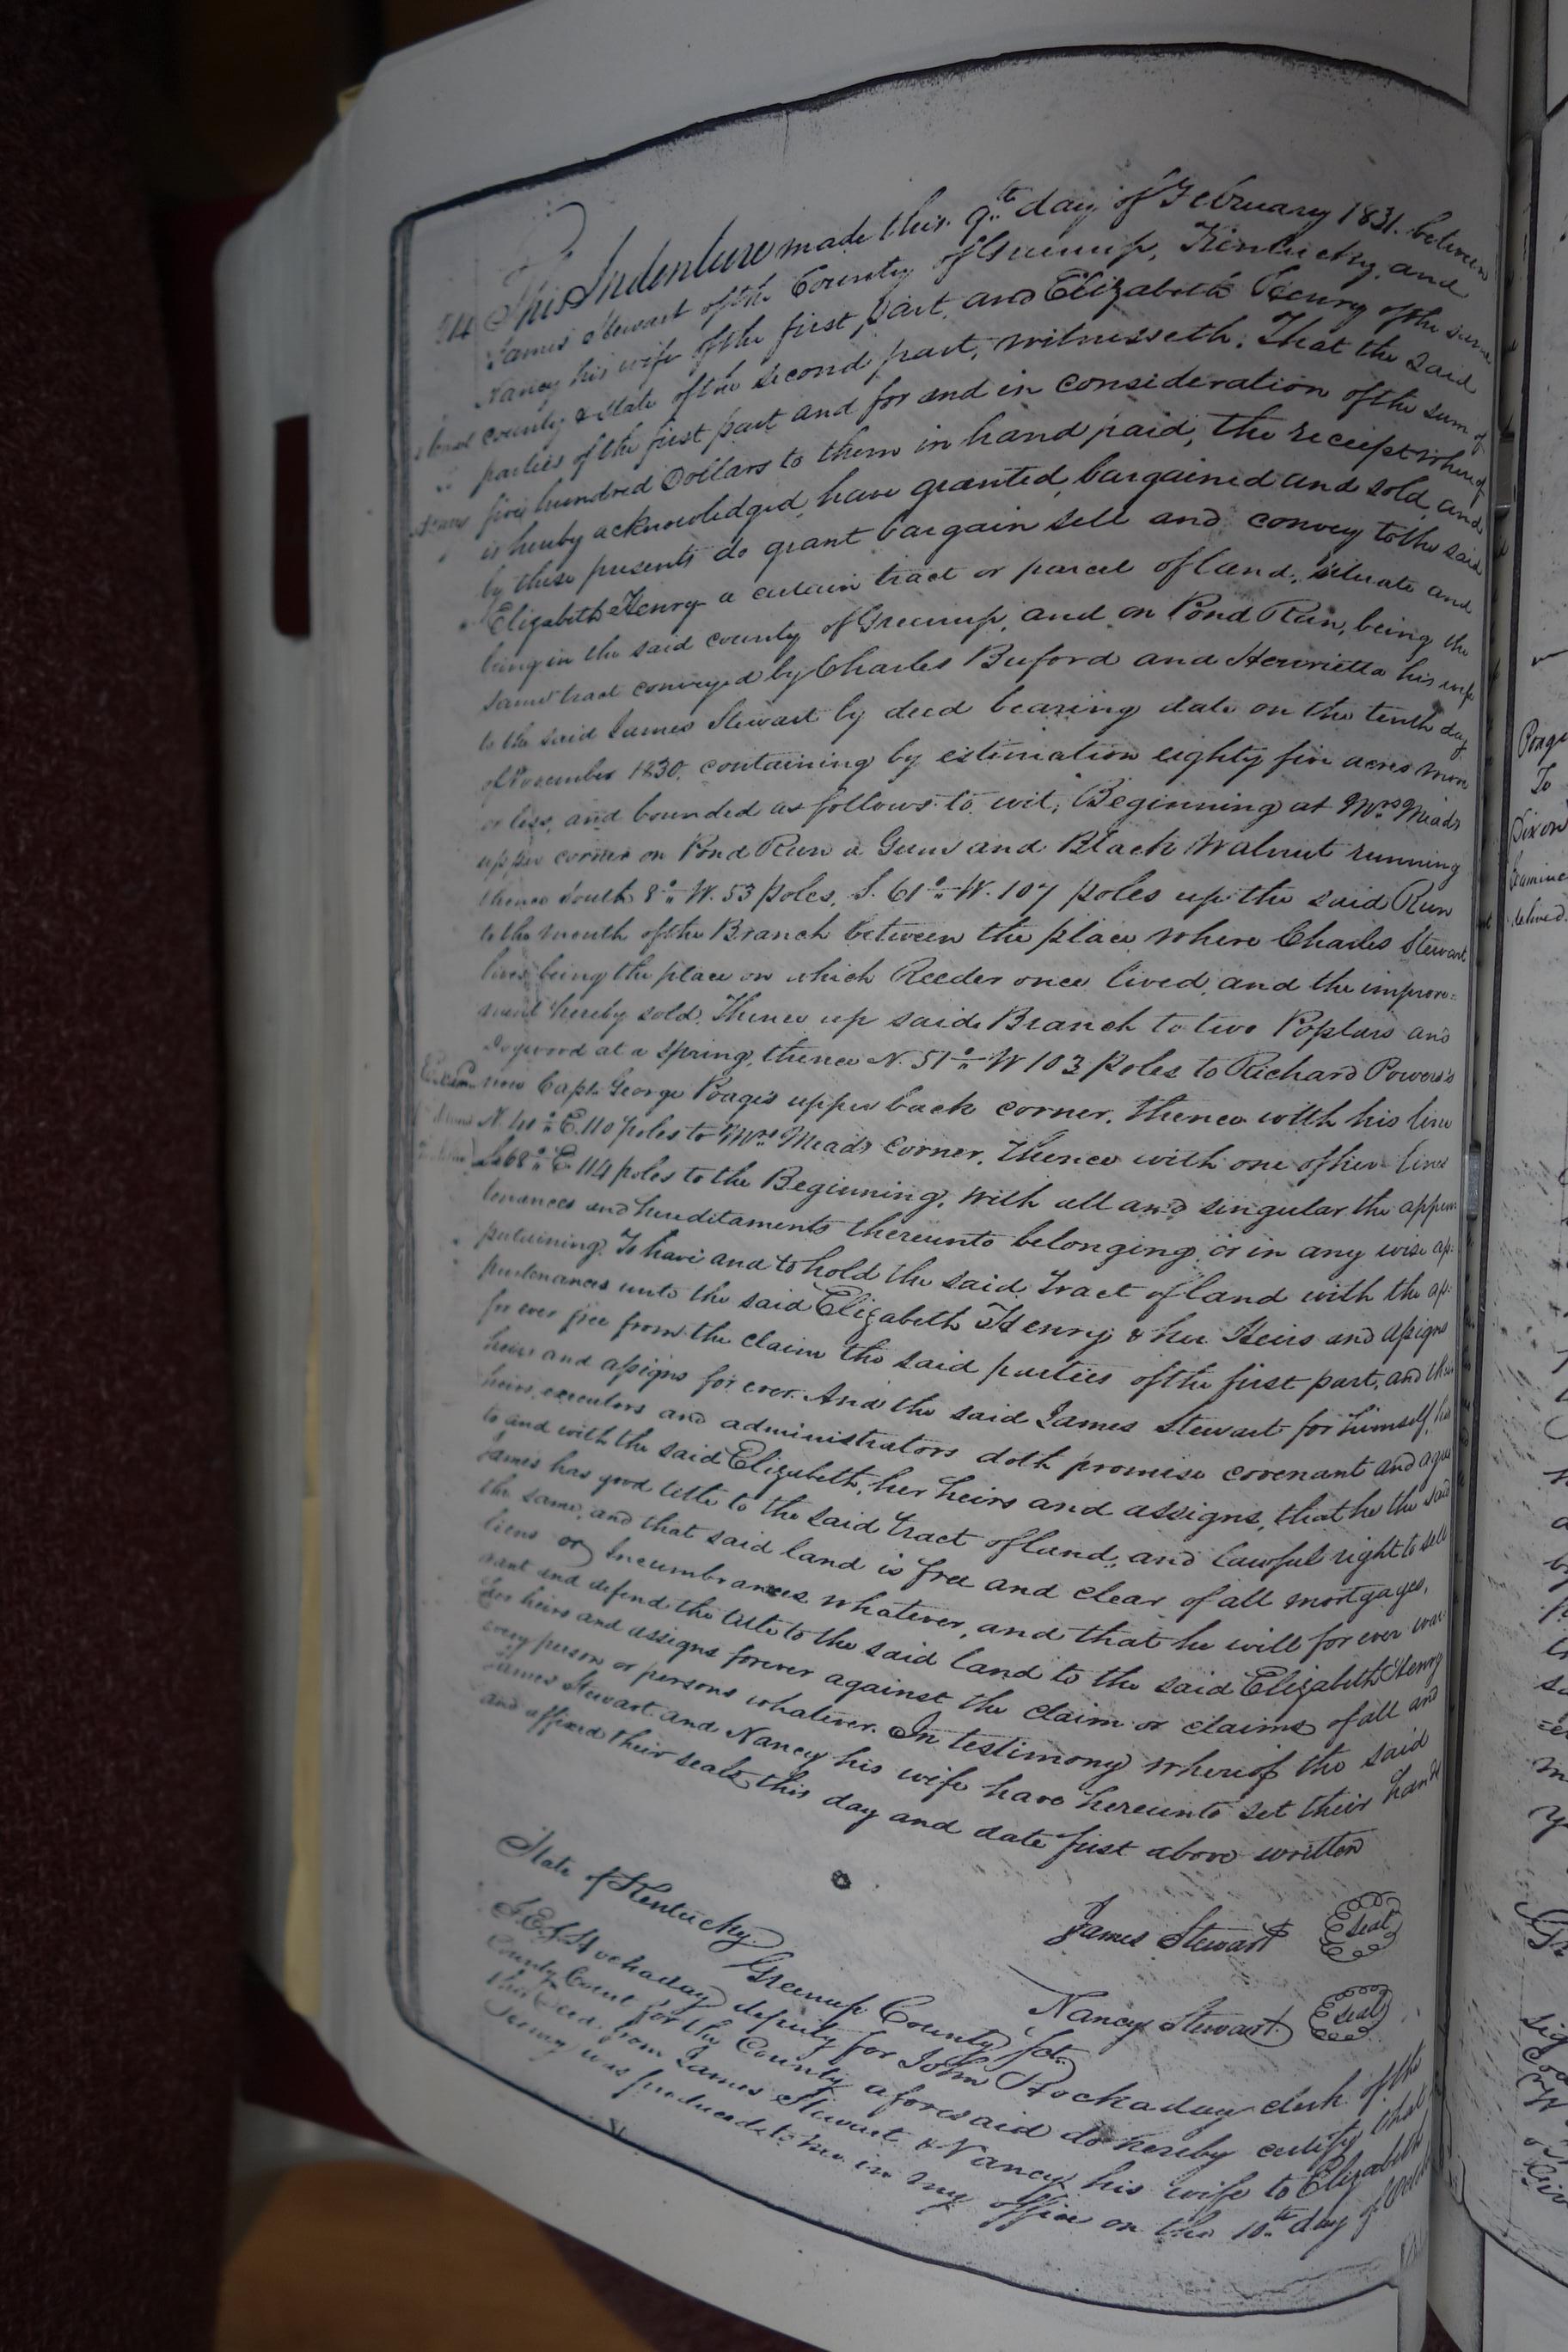 This Indenture made this 9th day of February 1831. between
James Stewart of the County of Greenup, Kentucky, and
Nancy his wife of the first part, and Elizabeth Henry of the same
county & State of the second part, witnesseth: That the said
parties of the first part and for and in consideration of the sum of
five hundred Dollars to them in hand paid, the receipt whereof
is hereby acknowledged, have granted, bargained and sold, and
by these presents do grant bargain sell and convey to the said
Elizabeth Henry a certain tract or parcel of land, situate and
being in the said county of Greenup, and on Pond Run, being the
same tract conveyed by Charles Buford and Henrietta his wife
to the said James Stewart by deed bearing date on the tenth day
of November 1830, containing by estimation eighty five acres more
or less, and bounded as follows to wit; Beginning at Mrs Meads
upper corner on Pond Run a Gum and Black Walnut running
thence South 8° W. 53 poles, S. 61° W. 107 poles up the said Run
to the mouth of the Branch between the place where Charles Stewart
lives being the place on which Reeder once lived, and the improve=
ment hereby sold. Thence up said Branch to two Poplars and
Dogwood at a spring, thence N. 51° W 103 poles to Richard Powers's
now Capt. George Poage's upper back corner, thence with his line
N. 40° E. 110 poles to Mrs Meads corner, thence with one of her lines
S. 68° E. 114 poles to the Beginning, with all and singular the appur
tenances and hereditaments thereunto belonging or in any wise ap=
pertaining. To have and to hold the said tract of land with the ap=
purtenances unto the said Elizabeth Henry & her Heirs and assigns
for ever free from the claim the said parties of the first part, and their
heirs and assigns for ever. And the said James Stewart for himself, his
heirs, executors and administrators doth promise covenant and agree
to and with the said Elizabeth, her heirs and assigns, that he the said
James has good title to the said tract of land, and lawful right to sell
the same, and that said land is free and clear of all mortgages,
liens or Incumbrances whatever, and that he will for ever war
rant and defend the title to the said land to the said Elizabeth Henry
her heirs and assigns forever against the claim or claims of all and
every person or persons whatever. In testimony whereof the said
James Stewart and Nancy his wife have hereunto set their hands
and affixed their seals this day and date first above written
James Stewart Seal
Nancy Stewart Seal
State of Kentucky
Greenup County Sct.
I. Hockaday deputy for John Hockaday clerk of the
County Court for the County aforesaid do hereby certify that
this Deed from James Stewart & Nancy his wife to Elizabeth
Henry was produced to me in my office on the 10th day of
Poage
To
Dixon